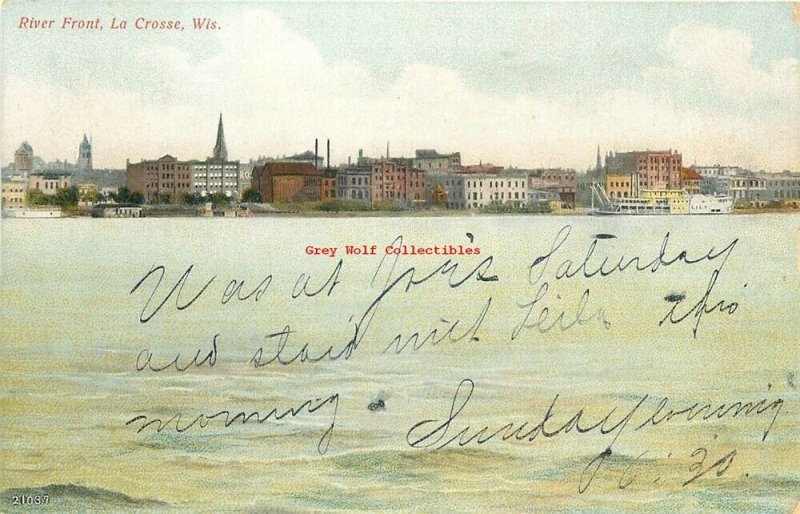 River Front, La Crosse, Wis.
Grey Wolf Collectibles
Was at Saturday
and staid Leila this
morning. Sunday evening
21037